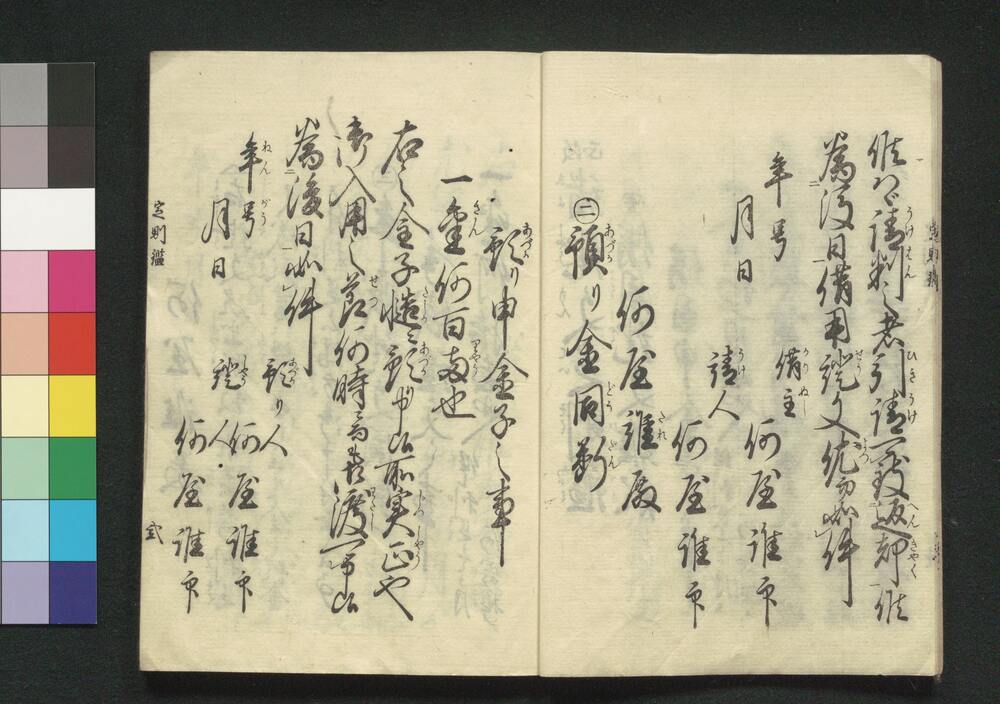 候ハヾ請判之者引請可致返却候
為後日借用證文仍而如件
年号
月日
借主 何屋誰印
請人 何屋誰印
何屋誰殿
㊁預り金同断
預り申金子之事
一金何百両也
右之金子慥ニ預り申候所実正也
御入用之節何時ニ而も相渡可申候
為後日如件
年号
月日
預り人 何屋誰印
證人 何屋誰印
定則
弐